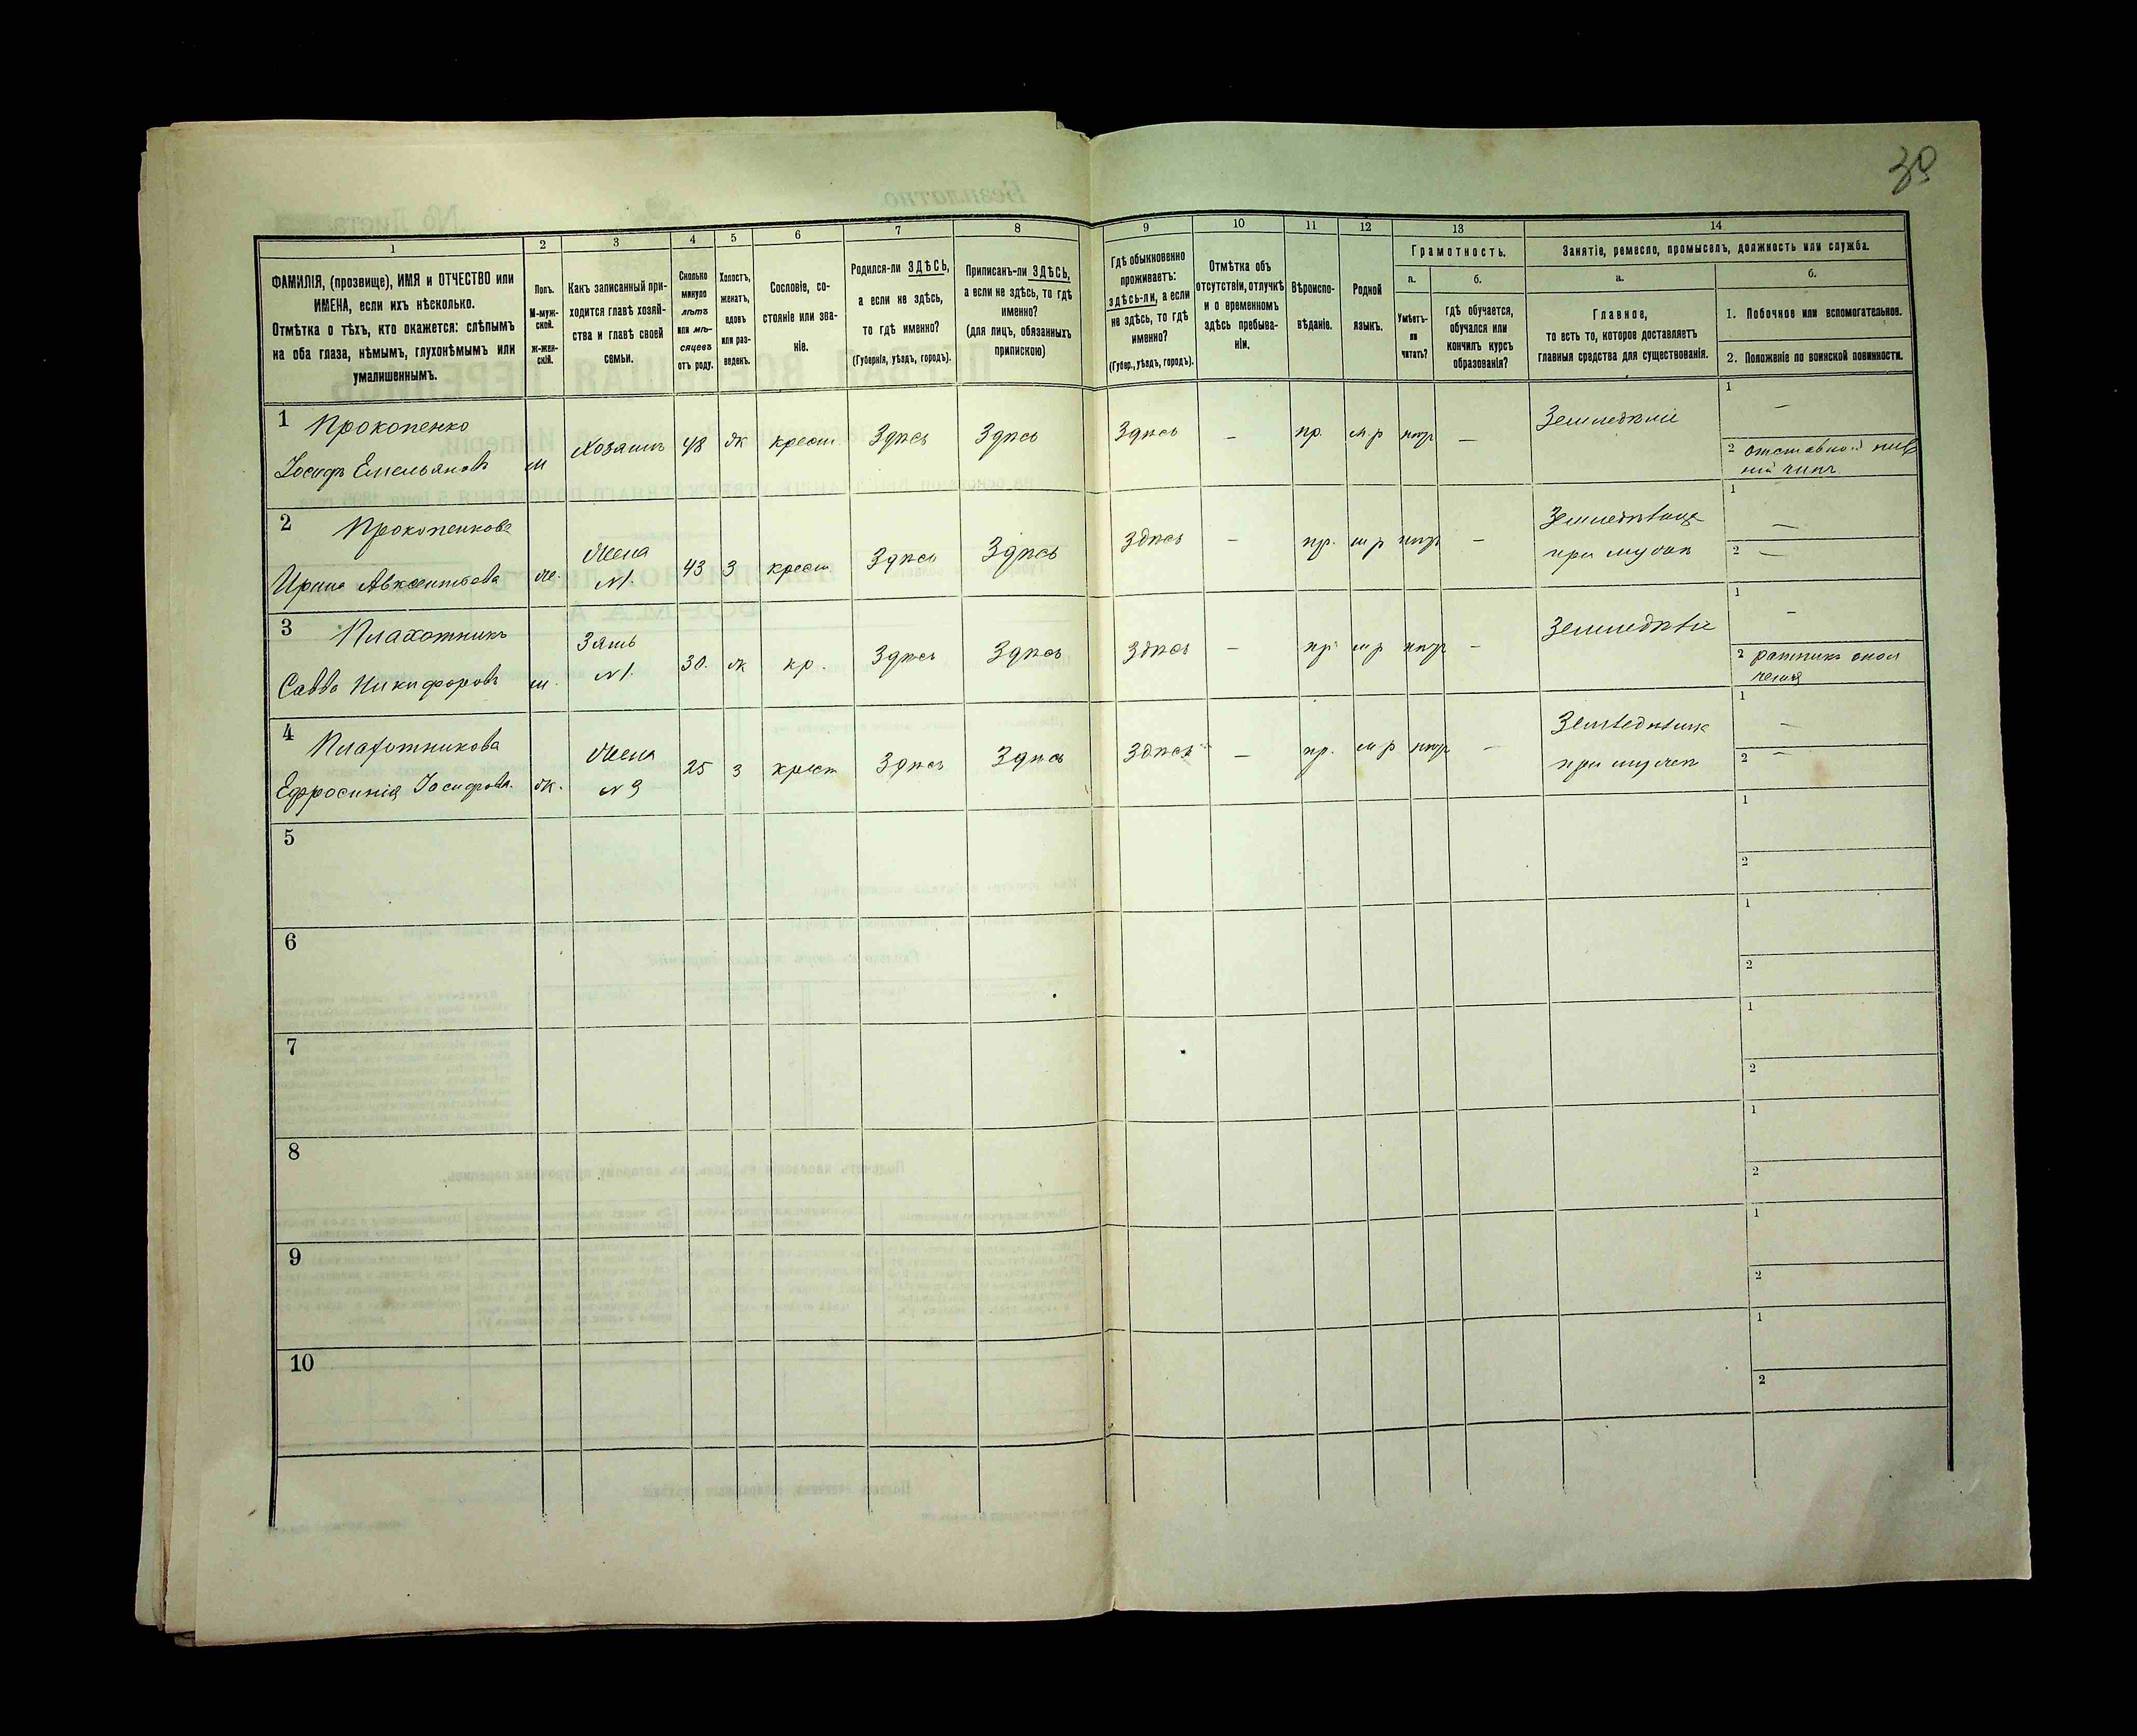 39
1 2 3 4 5 6 7 8 9 10 11 12 13 14
ФАМИЛІЯ, (прозвище), ИМЯ и ОТЧЕСТВО или
ИМЕНА, если ихъ нѣсколько.
Отмѣтка о тѣхъ, кто окажется: слѣпымъ
на оба глаза, нѣмымъ, глухонѣмымъ или
умалишеннымъ.
Полъ.
М-муж-
ской.
Ж-жен-
скій.
Какъ записанный при-
ходится главѣ хозяй-
ства и главѣ своей
семьи.
Сколько
минуло
лѣтъ
или мѣ-
сяцевъ
отъ роду.
Холостъ,
женатъ,
вдовъ
или раз-
веденъ.
Сословіе, со-
стояніе или зва-
ніе.
Родился-ли ЗДѢСЬ,
а если не здѣсь,
то гдѣ именно?
(Губернія, уѣздъ, городъ).
Приписанъ-ли ЗДѢСЬ,
а если не здѣсь, то гдѣ
именно?
(для лицъ, обязанныхъ
припискою)
Гдѣ обыкновенно
проживаетъ:
здѣсь-ли, а если
не здѣсь, то гдѣ
именно?
(Губер., уѣздъ, городъ).
Отмѣтка объ
отсутствіи, отлучкѣ
и о временномъ
здѣсь пребыва-
ніи.
Вѣроиспо-
вѣданіе.
Родной
языкъ.
Грамотность.
а.
Умѣетъ-
ли
читать?
б.
гдѣ обучается,
обучался или
кончилъ курсъ
образованія?
Занятіе, ремесло, промыселъ, должность или служба.
а.
Главное,
то есть то, которое доставляетъ
главныя средства для существованія.
б.
1. Побочное или вспомогательное.
2. Положеніе по воинской повинности.
1 Прокопенко
Іосифъ Емельяновъ м Хозяинъ 48 ж крест. Здѣсь Здѣсь Здѣсь — пр. м. р нѣтъ — Земледѣліе
1 —
2 отставной ниж
ній чинъ.
2 Прокопенкова
Ирина Авксентьева ж. Жена
№1. 43 з крест Здѣсь Здѣсь Здѣсь — пр. м р нѣтъ — Земледѣлица
при мужѣ
1 —
2 —
3 Плахотникъ
Савва Никифоровъ м. Зять
№1. 30. ж кр. Здѣсь Здѣсь Здѣсь — пр м р нѣтъ — Земледѣліе
1 —
2 ратникъ опол
ченія
4 Плахотникова
Ефросинія Іосифова. ж. Жена
№3 25 з крест Здѣсь Здѣсь Здѣсь — пр. м р нѣтъ —
при мужѣ
1 —
2 —
5
1
2
6
1
2
7
1
2
8
1
2
9
1
2
10
1
2